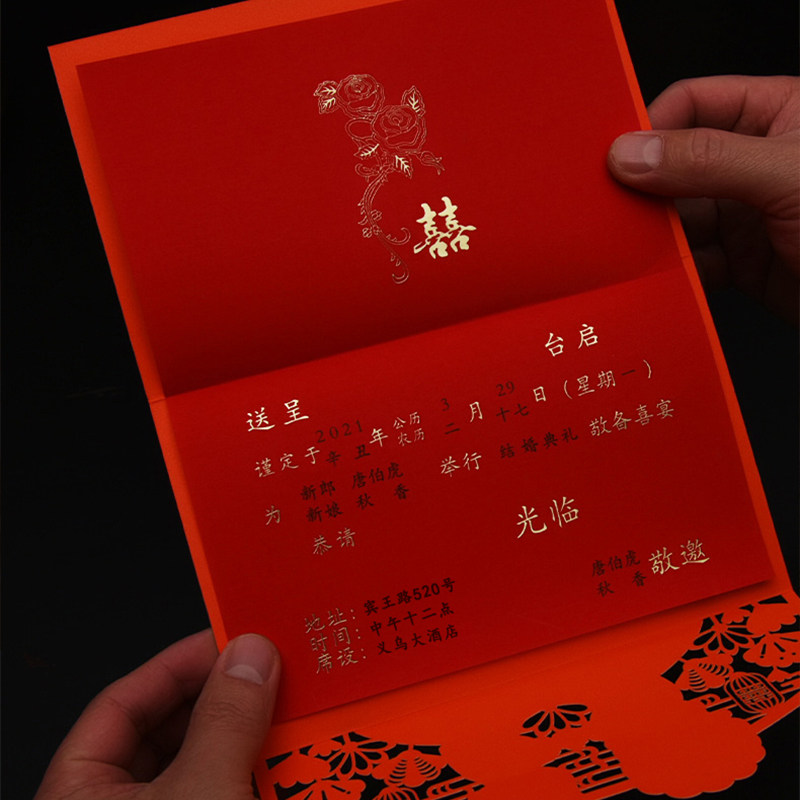 囍
台启
送呈
谨定于2021年公历3月29日（星期一）
辛丑 农历二 十七
为 新郎 唐伯虎 举行 结婚典礼 敬备喜宴
新娘 秋香
恭请
光临
唐伯虎
秋香 敬邀
地址：宾王路520号
时间：中午十二点
席设：义乌大酒店